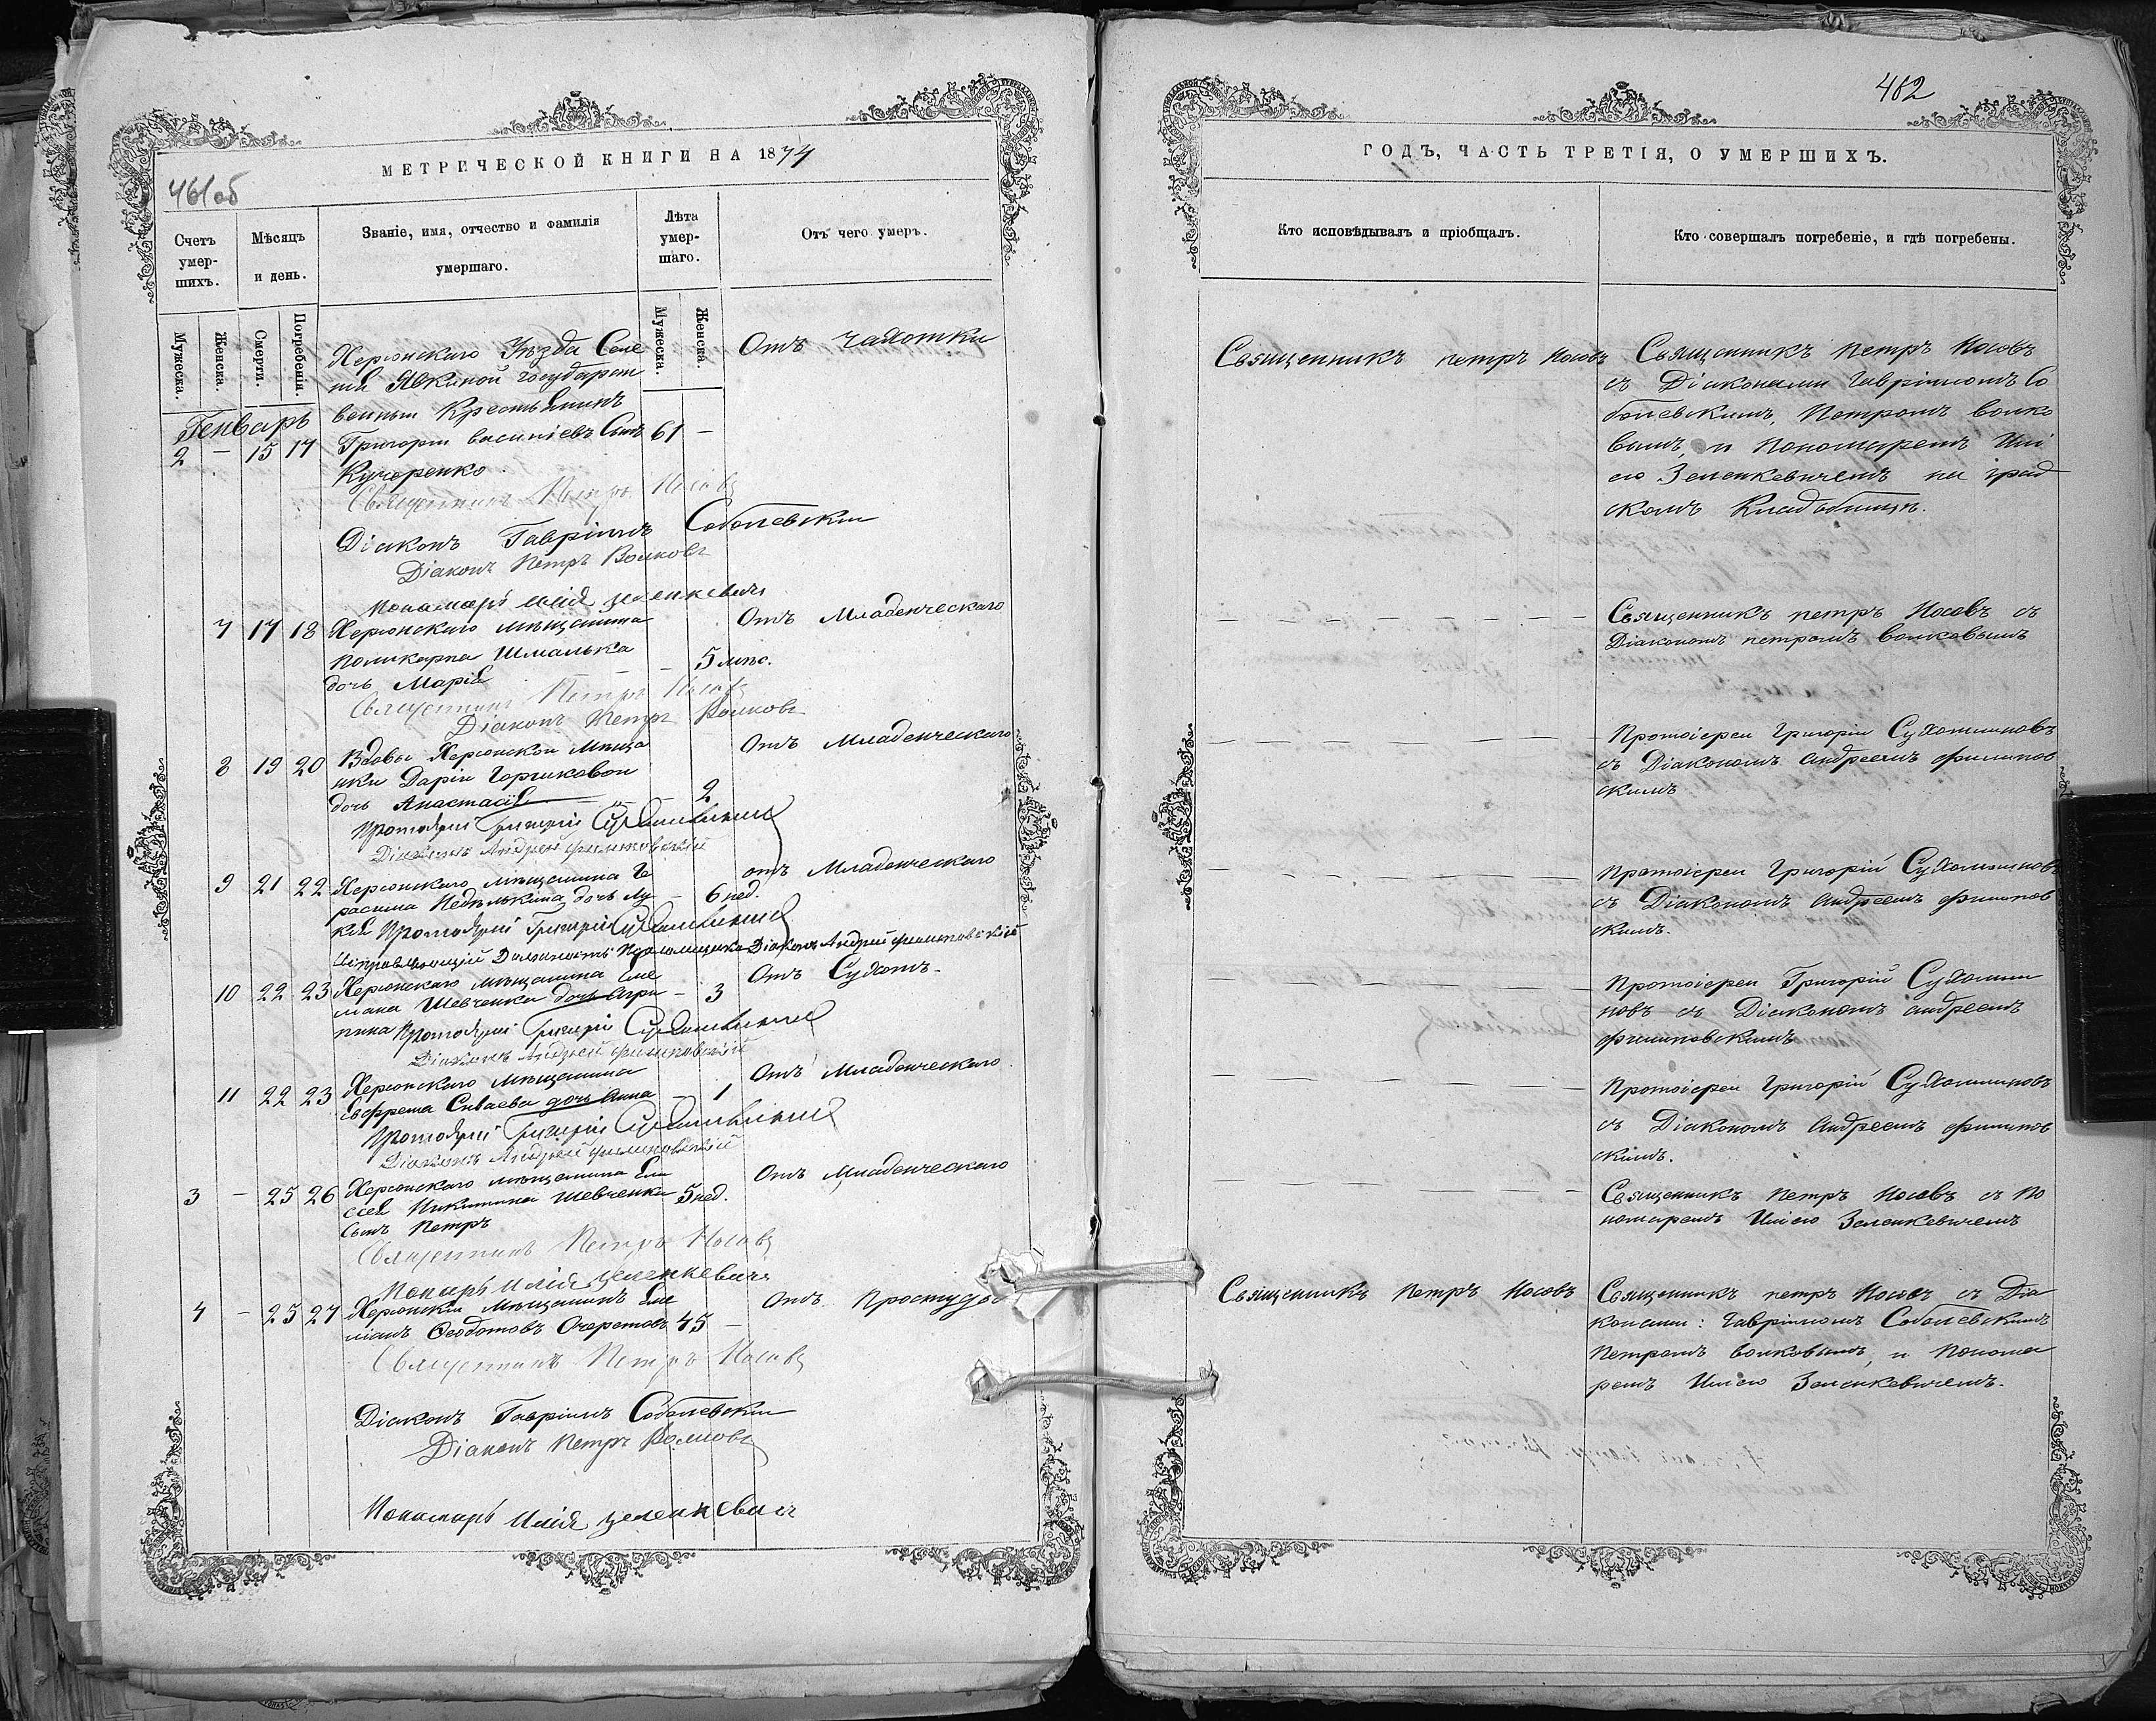 МЕТРИЧЕСКОЙ КНИГИ НА 1874
461об
Счетъ умер-шихъ.
Мѣсяцъ и день.
Званіе, имя, отчество и фамилія умершаго.
Лѣта умер-шаго.
Отъ чего умеръ.
Мужеска.
Женска.
Смерти.
Погребенія.
Мужеска.
Женска.
Генварь
2 – 15 17
Херсонскаго Уѣзда Селе
нія Явкиной государст
венный Крестьянинъ
Григорій василіевъ Сынъ 61 –
Кучеренко.
Отъ чахотки
Священникъ Петръ Носовъ
Діаконъ Гавріилъ Соболевскій
Діаконъ Петръ Волковъ
Пономарь Илія Зеленкевичъ
7 17 18 Херсонскаго мѣщанина
поликарпа Шмалька
дочь Марія – 5 мѣс.
Отъ Младенческаго
Священникъ Петръ Носовъ
Діаконъ Петръ Волковъ
8 19 20 Вдовы Херсонской Мѣща
нки Даріи Горшковой
дочь Анастасія 2
Отъ Младенческаго
Протоіерей Григорій Сухомлиновъ
Діаконъ Андрей Филиповскій
9 21 22 Херсонскаго мѣщанина Ге
расима Недѣлькина дочь Лу – 6 нед.
кія
отъ Младенческаго
Протоіерей Григорій Сухомлиновъ
Исправляющій Должность Псаломщика Діаконъ Андрей Филиповскій
10 22 23 Херсонскаго мѣщанина Еме
лiана Шевченка дочь Агри – 3
пина
Отъ Сухотъ
Протоіерей Григорій Сухомлиновъ
Діаконъ Андрей Филиповскій
11 22 23 Херсонскаго Мѣщанина
дочь Анна – 1
Отъ Младенческаго
Протоіерей Григорій Сухомлиновъ
Діаконъ Андрей Филиповскій
3 – 25 26 Херсонскаго мѣщанина Ели
сея Никитина Шевченка 5 нед.
Сынъ Петръ
Отъ Младенческаго
Священникъ Петръ Носовъ
Илія Зеленкевичъ
4 – 25 27 Херсонскій Мѣщанинъ Еме
ліанъ Ѳеодотовъ Очеретовъ 45 –
Отъ Простуды
Священникъ Петръ Носовъ
Діаконъ Гавріилъ Соболевскій
Діаконъ Петръ Волковъ
Пономарь Илія Зеленкевичъ
462
ГОДЪ, ЧАСТЬ ТРЕТІЯ, О УМЕРШИХЪ.
Кто исповѣдывалъ и пріобщалъ.
Кто совершалъ погребеніе, и гдѣ погребены.
Священникъ петръ Носовъ
Священникъ петръ Носовъ
съ Діаконами Гавріиломъ Со
болевскимъ, Петромъ волко
вымъ, и Пономаремъ Илі
ею Зеленкевичемъ на град
скомъ Кладбищѣ.
Священникъ петръ Носовъ съ
Діакономъ петромъ волковымъ
Протоіерей Григорій Сухомлиновъ
съ Діакономъ Андреемъ филипов
скимъ
Протоіерей Григорій Сухомлиновъ
съ Діакономъ Андреемъ филипов
скимъ.
Протоіерей Григорій Сухомли
новъ съ Діакономъ андреемъ
филиповскимъ
Протоіерей Григорій Сухомлиновъ
съ Діакономъ Андреемъ филипов
скимъ.
Священникъ Петръ Носовъ съ По
номаремъ Иліею Зеленкевичемъ
Священникъ Петръ Носовъ
Священникъ петръ Носовъ съ Діа
конами: Гавріиломъ Соболевскимъ
Петромъ волковымъ, и Понома
ремъ Иліею Зеленкевичемъ.